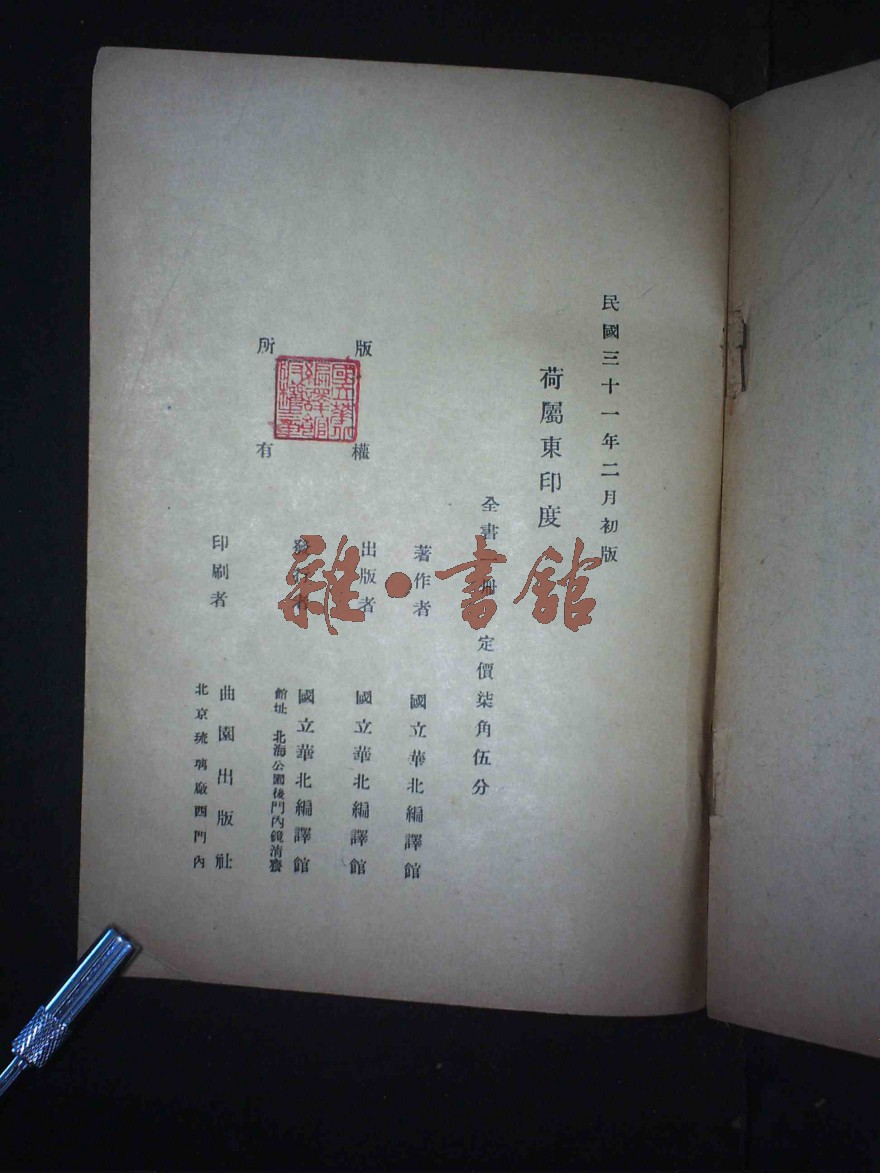 民國三十一年二月初版
荷屬東印度
全書一冊 定價柒角伍分
著作者 國立華北編譯館
出版者 國立華北編譯館
發行者 國立華北編譯館
館址 北海公園後門內鏡清齋
印刷者 曲園出版社
北京琉璃廠西門內
版權所有
國立華北編譯館版權章
雜·書館